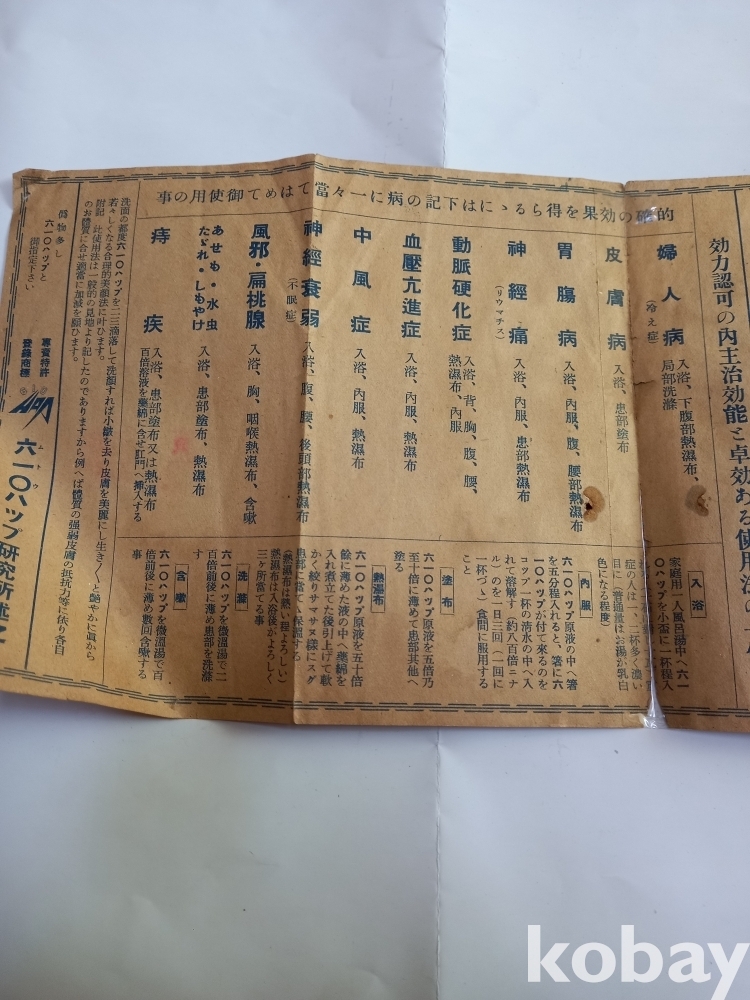 効力認可の内主治効能と卓効ある使用法の
的確の効果を得らるゝには下記の病に一々當てはめて御使用の事
婦人病
(冷え症)
入浴、下腹部熱濕布、
局部洗滌
皮膚病
入浴、患部塗布
胃腸病
入浴、內服、腹、腰部熱濕布
神經痛
(リウマチス)
入浴、內服、患部熱濕布
動脈硬化症
入浴、背、胸、腹、腰、
熱濕布、內服
血壓亢進症
入浴、內服、熱濕布
中風症
入浴、內服、熱濕布
神經衰弱
(不眠症)
入浴、腹、腰、後頭部熱濕布
風邪・扁桃腺
入浴、胸、咽喉熱濕布、含嗽
あせも・水虫
たゞれ・しもやけ
入浴、患部塗布、熱濕布
痔疾
入浴、患部塗布又は熱濕布
百倍溶液を藥綿に含せ肛門へ挿入する
入浴
家庭用一人風呂湯中へ六一
〇ハップを小盃に一杯程入
症の人は一、二杯多く濃い
目に(普通量はお湯が乳白
色になる程度)
內服
六一〇ハップ原液の中へ箸
を五分程入れると、箸に六
一〇ハップが付て來るのを
コップ一杯の清水の中へ入
れて溶解す(約八百倍ニナ
ル)のを一日三回(一回に
一杯づゝ)食間に服用する
こと
塗布
六一〇ハップ原液を五倍乃
至十倍に薄めて患部其他へ
塗る
熱濕布
六一〇ハップ原液を五十倍
餘に薄めた液の中へ藥綿を
入れ煮立てた後引上げて軟
かく絞りサマサヌ樣にスグ
患部に當てゝ保溫する
(熱濕布は熱い程よろしい)
熱濕布は入浴後がよろしく
三ヶ所當てる事
洗滌
六一〇ハップを微溫湯で二
百倍前後に薄め患部を洗滌
す
含嗽
六一〇ハップを微溫湯で百
倍前後に薄め數回含嗽する
事
洗面の都度六一〇ハップを二三滴落して洗顏すれば小皺を去り皮膚を美麗にし生き〱と艷やかに眞から
若々しくなる合理的美顏法に叶ひます。
附記 此使用法は一般的の見地より記したのでありますから例へば體質の強弱皮膚の抵抗力等に依り各自
のお體質に合せ適當に加減を願ひます。
僞物多し
六一〇ハップと
御指定下さい
專賣特許
登錄商標
六一〇ハップ研究所述
kobay